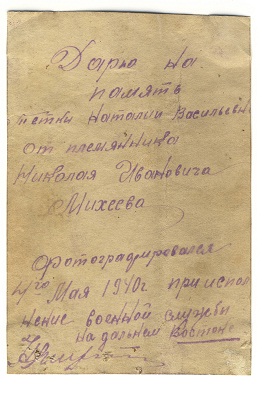 Дарю на
память
тетки Наталии Васильевне
от племянника
Николая Ивановича
Михеева
Фотографировался
4го Мая 1940г при испол
нение военной службы
на дальнем Востоке